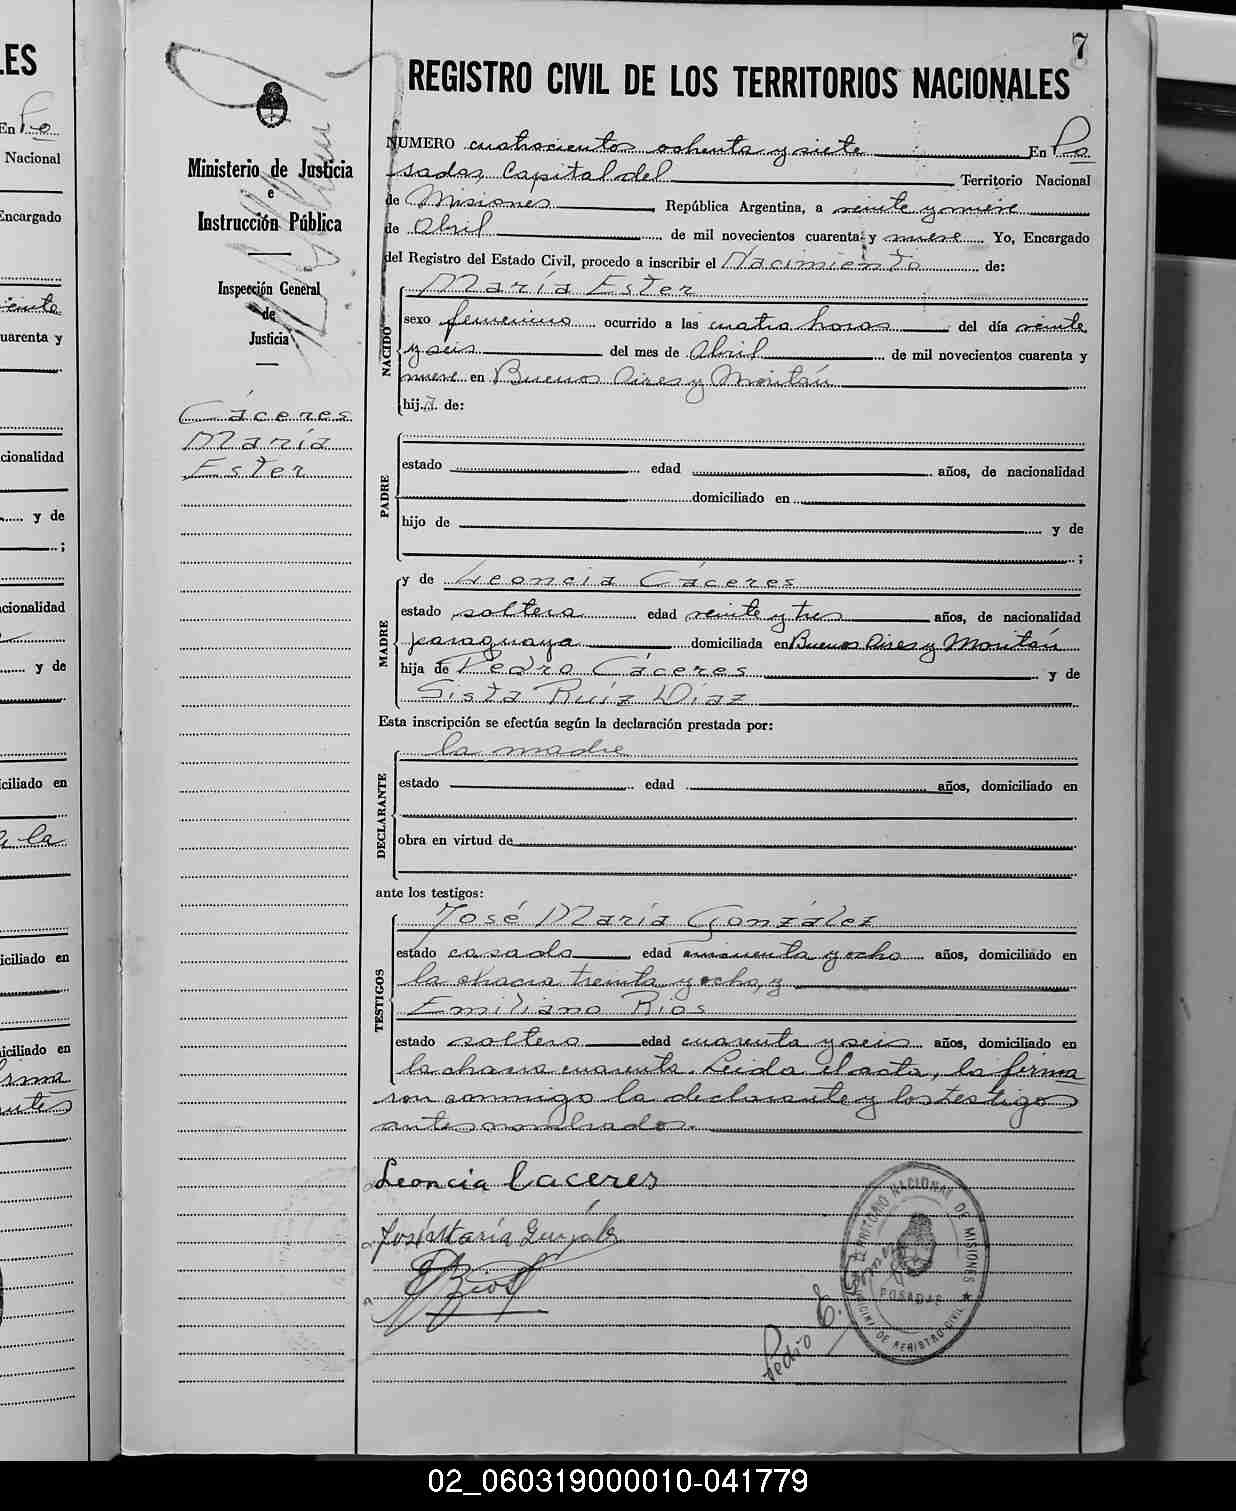 7
REGISTRO CIVIL DE LOS TERRITORIOS NACIONALES
Ministerio de Justicia
e
Instrucción Pública
Inspección General
de
Justicia
Cáceres
María
Ester
NUMERO cuatrocientos ochenta y siete En Po
sadas, Capital del Territorio Nacional
de Misiones República Argentina, a veinte y nueve
de Abril de mil novecientos cuarenta y nueve Yo, Encargado
del Registro del Estado Civil, procedo a inscribir el Nacimiento de:
NACIDO
María Ester
sexo femenino ocurrido a las cuatro horas del día veinte
y seis del mes de Abril de mil novecientos cuarenta y
nueve en Buenos Aires y Moritán
hija de:
PADRE
estado edad años, de nacionalidad
domiciliado en
hijo de y de
;
MADRE
y de Leoncia Cáceres
estado soltera edad veinte y tres años, de nacionalidad
paraguaya domiciliada en Buenos Aires y Moritán
hija de Pedro Cáceres y de
Sista Ruíz Díaz
Esta inscripción se efectúa según la declaración prestada por:
DECLARANTE
la madre
estado edad años, domiciliado en
obra en virtud de
ante los testigos:
TESTIGOS
José María González
estado casado edad cincuenta y ocho años, domiciliado en
la chacra treinta y ocho, y
Emiliano Rios
estado soltero edad cuarenta y seis años, domiciliado en
la chacra cuarenta. Leida el acta, la firma
ron conmigo la declarante y los testigos
antes nombrados.
Leoncia Caceres
José María González
E Rios
Pedro E.
TERRITORIO NACIONAL DE MISIONES
POSADAS
DE REGISTRO CIVIL
LES
En Po
Nacional
Encargado
veinte
uarenta y
cionalidad
y de
;
acionalidad
y de
iciliado en
a la
iciliado en
iciliado en
firma
02_060319000010-041779